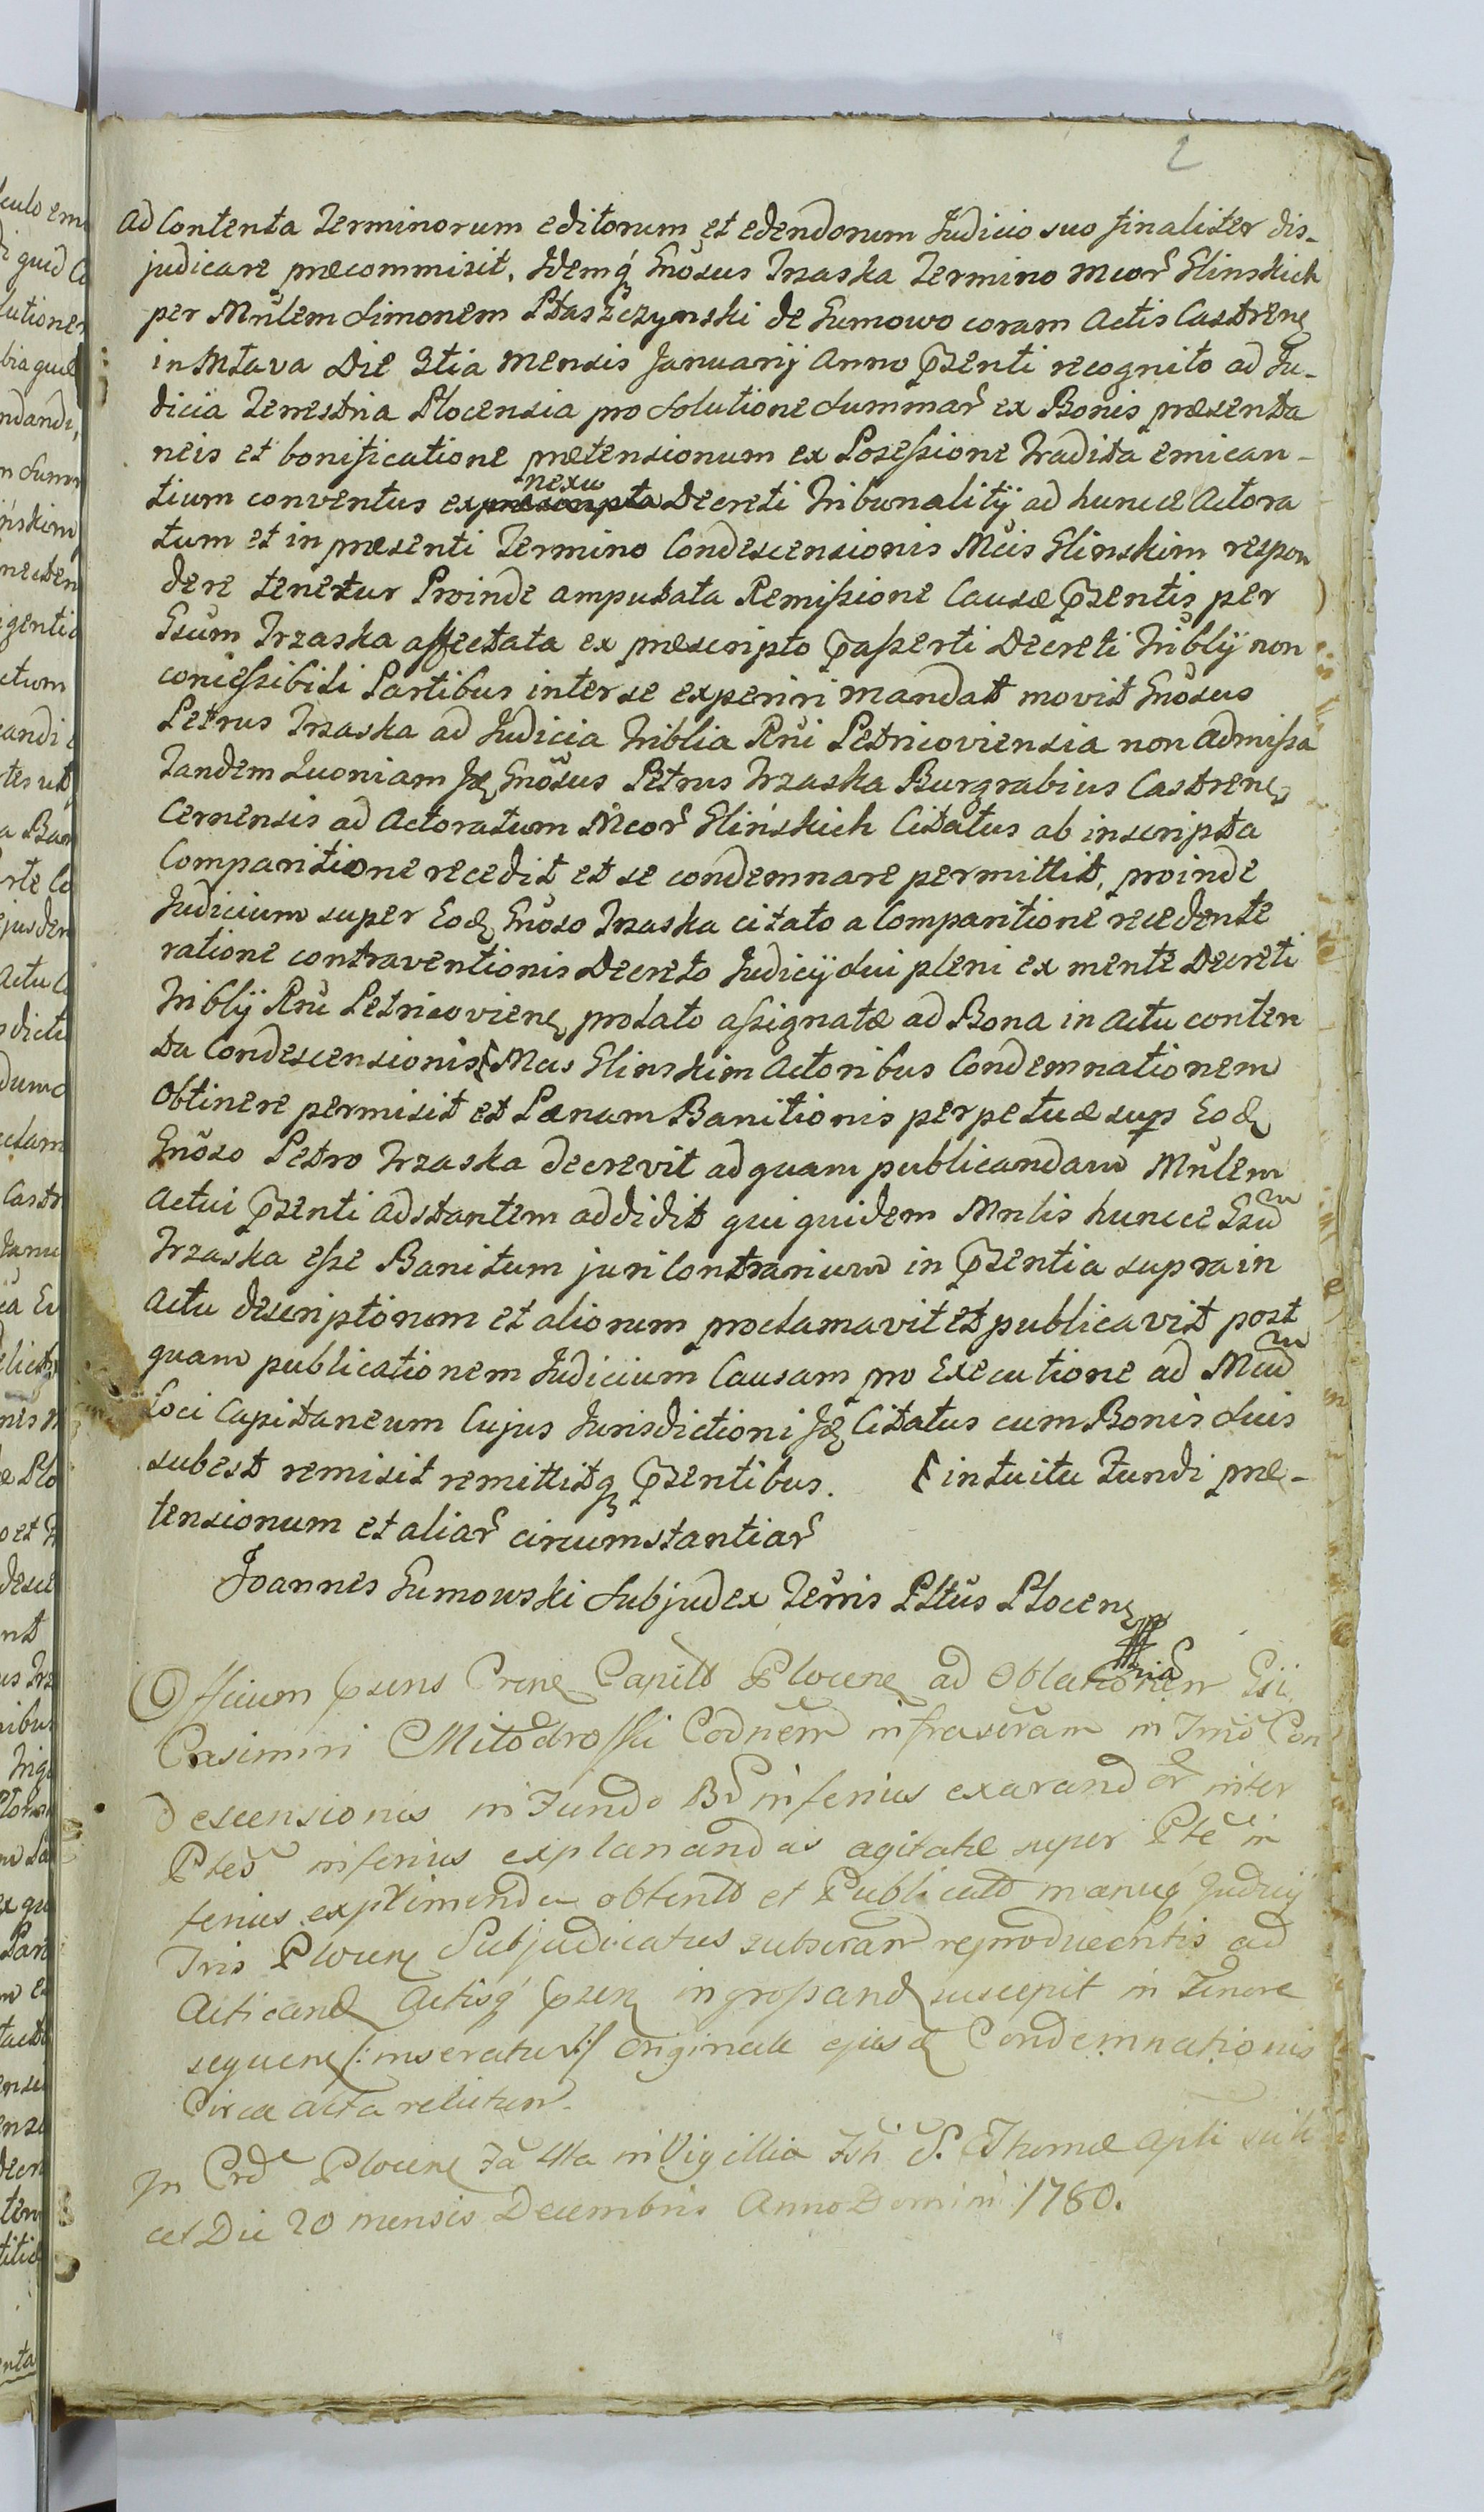 2
ad Contenta Terminorum editorum et edendorum Judicio suo finaliter dis-
judicare præcommisit, Idemq́ Gnösus Trzaska Termino Mcor̃ Glinskich
per Mnlem Simonem Ptaszczynski de Gumowo coram Actis Castrenꝭ
in Mlava Die 3tia Mensis Januarij Anno p̃senti recognito ad Ju-
dicia Terrestria Plocensia pro Solutione Summar̃ ex Bonis præsenta
neis et bonificatione prætensionum ex Posessione Tradita emican-
nexu
tium conventus ex præscripto Decreti Tribunalitij ad huncce Actora
tum et in præsenti Termino Condescensionis Mcis Glinskim respon
dere tenetur Proinde amputata Remissione Causæ p̃sentis per
Gsum Trzaska affectata ex præscripto p̃asserti Decreti Triblij non
concessibili Partibus inter se experiri mandat movit Gnösus
Petrus Trzaska ad Judicia Triblia Rñi Petricoviensia non admissa
Tandem Quoniam Idꝭ Gnösus Petrus Trzaska Burgrabius Castrenꝭ
Cernensis ad Actoratum Mcor̃ Glińskich Citatus ab inscripta
Comparitione recedit et se condemnare permittit, proinde
Judicium super Eodꝭ Gnöso Trzaska citato a Comparitione recedente
ratione contraventionis Decreto Judicij Sui pleni ex mente Decreti
Triblij Rñi Petricovienꝭ prolato assignatæ ad Bona in Actu conten
ta Condescensionis Mcis Glinskim Actoribus Condemnationem
Obtinere permisit et Pænam Banitionis perpetuæ sup Eodꝭ
Gnöso Petro Trzaska decrevit ad quam publicandam Mnlem
Actui p̃senti adstantem addidit qui quidem Mnlis huncce Gsũm
Trzaska esse Banitum juri Contrarium in p̃sentia supra in
Actu descriptorum et aliorum proclamavit et publicavit post
quam publicationem Judicium Causam pro Executione ad Mcũm
Loci Capitaneum Cujus Jurisdictioni Idꝭ Citatus cum Bonis Suis
subest remisit remittitqꝫ p̃sentibus. intuitu Fundi præ-
tensionum et aliar̃ circumstantiar̃
Joannes Gumowski Subjudex Terris Pltus Plocenꝭ
Officium p̃sens Crenꝭ Capitl Plocenꝭ ad Oblationem Gsi
Casimiri Mitodroski Codnem̃ infrascram in Tnõ Con
descensionis in Fundo Bd inferius exarandor̃ inter
Ptes inferius explanandas agitatæ super Pte in
ferius exprimenda obtentd et Publicatd manuq́ Judicij
Tris Plocenꝭ Subjudicatus subscram reproducentis ad
Acticandꝭ Actisq́ p̃senꝭ ingrossandꝭ suscepit in Tenore
sequenꝭ /: inseratur :/ Originale ejusdꝭ Condemnationis
Circa acta relictum.
In Crd Plocenꝭ Fa 4ta in Vigillia Fsti S. Thomæ Apli sili
cet Die 20 mensis Decembris Anno Domini 1780.